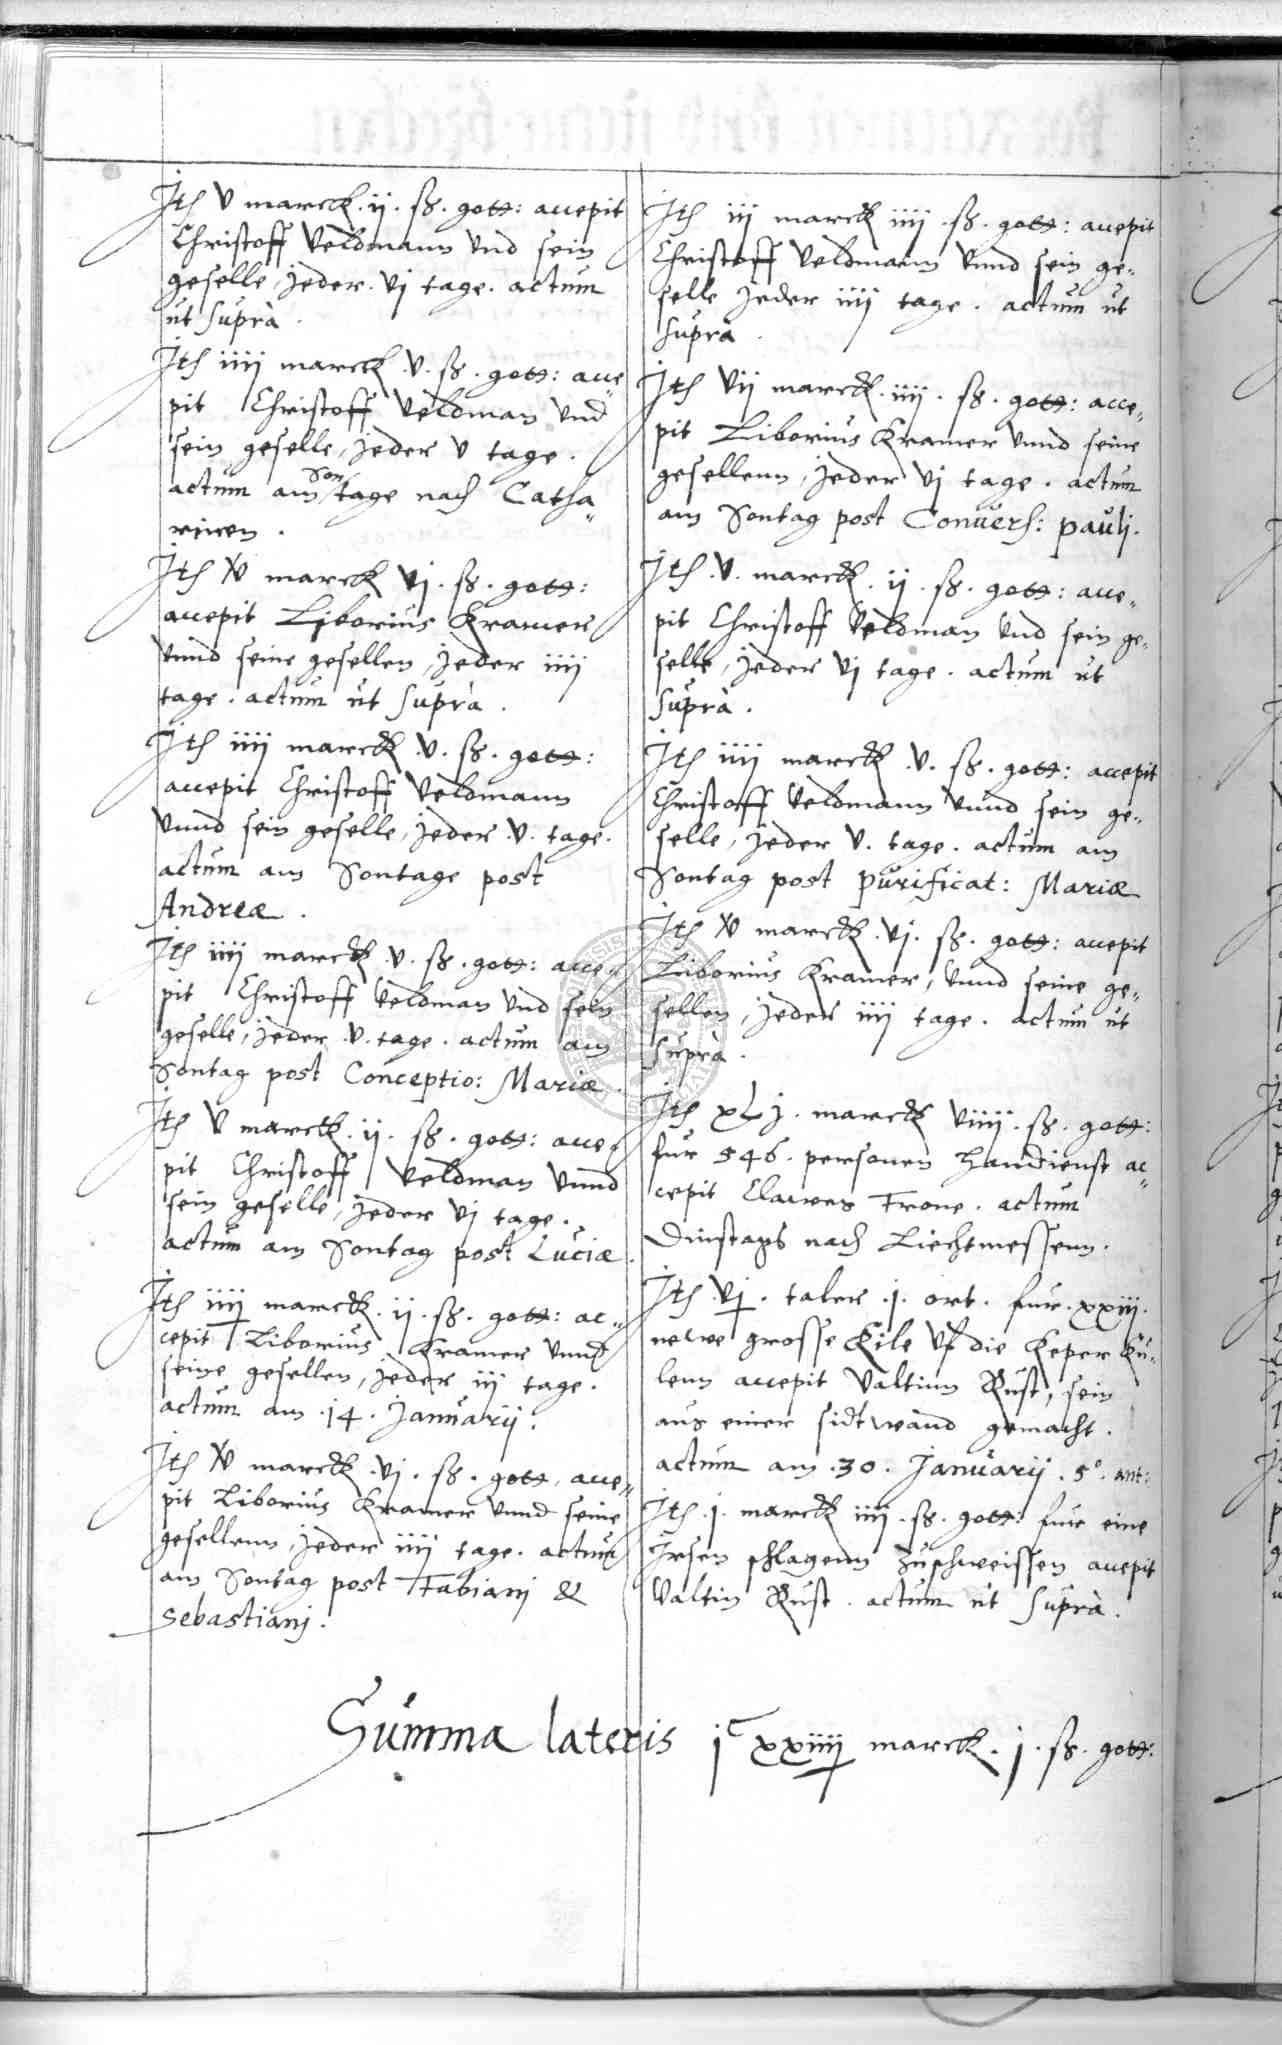 Ite v marck. ij. ß. gott: accepit
Christoff Veldmann vnd sein
geselle, jeder. vj tage. actum
ut suprà.
Ite iiij marck .v. ß. gott: acce„
pit Christoff Veldman vnd
sein geselle, jeder v tage.
Son
actum am tage nach Catha„
rinen.
Ite xv marck vj. ß. gott:
accepit Liborius Kramer
vnnd seine gesellen, jeder iiij
tage. actum ut suprà.
Ite iiij marck .v. ß. gott:
accepit Christoff Veldmann
vnnd sein geselle, jeder .v. tage.
actum am Sontage post
Andreæ.
Ite iiij marck .v. ß. gott: acce„
pit Christoff Veldman vnd sein
geselle, jeder .v. tage. actum am
Sontag post Conceptio: Mariæ.
Ite v marck. ij. ß. gott: acce„
pit Christoff Veldman vnnd
sein geselle, jeder vj tage.
actum am Sontag post Luciæ.
Ite iiij marck. ij. ß. gott: ac„
cepit Liborius Kramer vnnd
seine gesellen, jeder iij tage.
actum am .14. Januarij.
Ite xv marck .vj. ß. gott, acce„
pit Liborius Kramer vnnd seine
gesellenn, jeder iiij tage. actum
am Sontag post Fabianj &
Sebastianj.
Ite iij marck iiij .ß. gott: accepit
Christoff Veldmann vnnd sein ge„
selle jeder iiij tage. actum ut
suprà.
Ite vij marck .iiij. ß. gott: acce„
pit Liborius Kramer vnnd seine
gesellenn, jeder vj tage. actum
am Sontag post Conuers: paulj.
Ite .v. marck. ij. ß. gott: acce„
pit Christoff Veldman vnd sein ge„
selle, jeder vj tage. actum ut
suprà.
Ite iiij marck .v. ß. gott: accepit
Christoff Veldmann vnnd sein ge„
selle, jeder v. tage. actum am
Sontag post purificat: Mariæ
Ite xv marck .vj. ß. gott: accepit
Liborius Kramer, vnnd seine ge„
sellen, jeder iiij tage. actum ut
suprà.
Ite xLj. marck viiij. ß. gott:
fur 546. personen Handienst ac„
cepit Clawes Frone. actum
Dinstags nach Liechtmessenn.
Ite vj. taler .j. ort. fur .xxiij.
newe grosse Kile vf die Keper Ku„
lenn accepit Valtinn Rust, sein
aus einer sidtwand gemacht.
actum am .30. Januarij. 5°. ant:
Ite .j. marck iiij .ß. gott: fur eine
Jsen schlagenn zuschweissen accepit
Valtin Rust. actum ut suprà.
Summa lateris jC xxiiij marck. j. ß. gott: